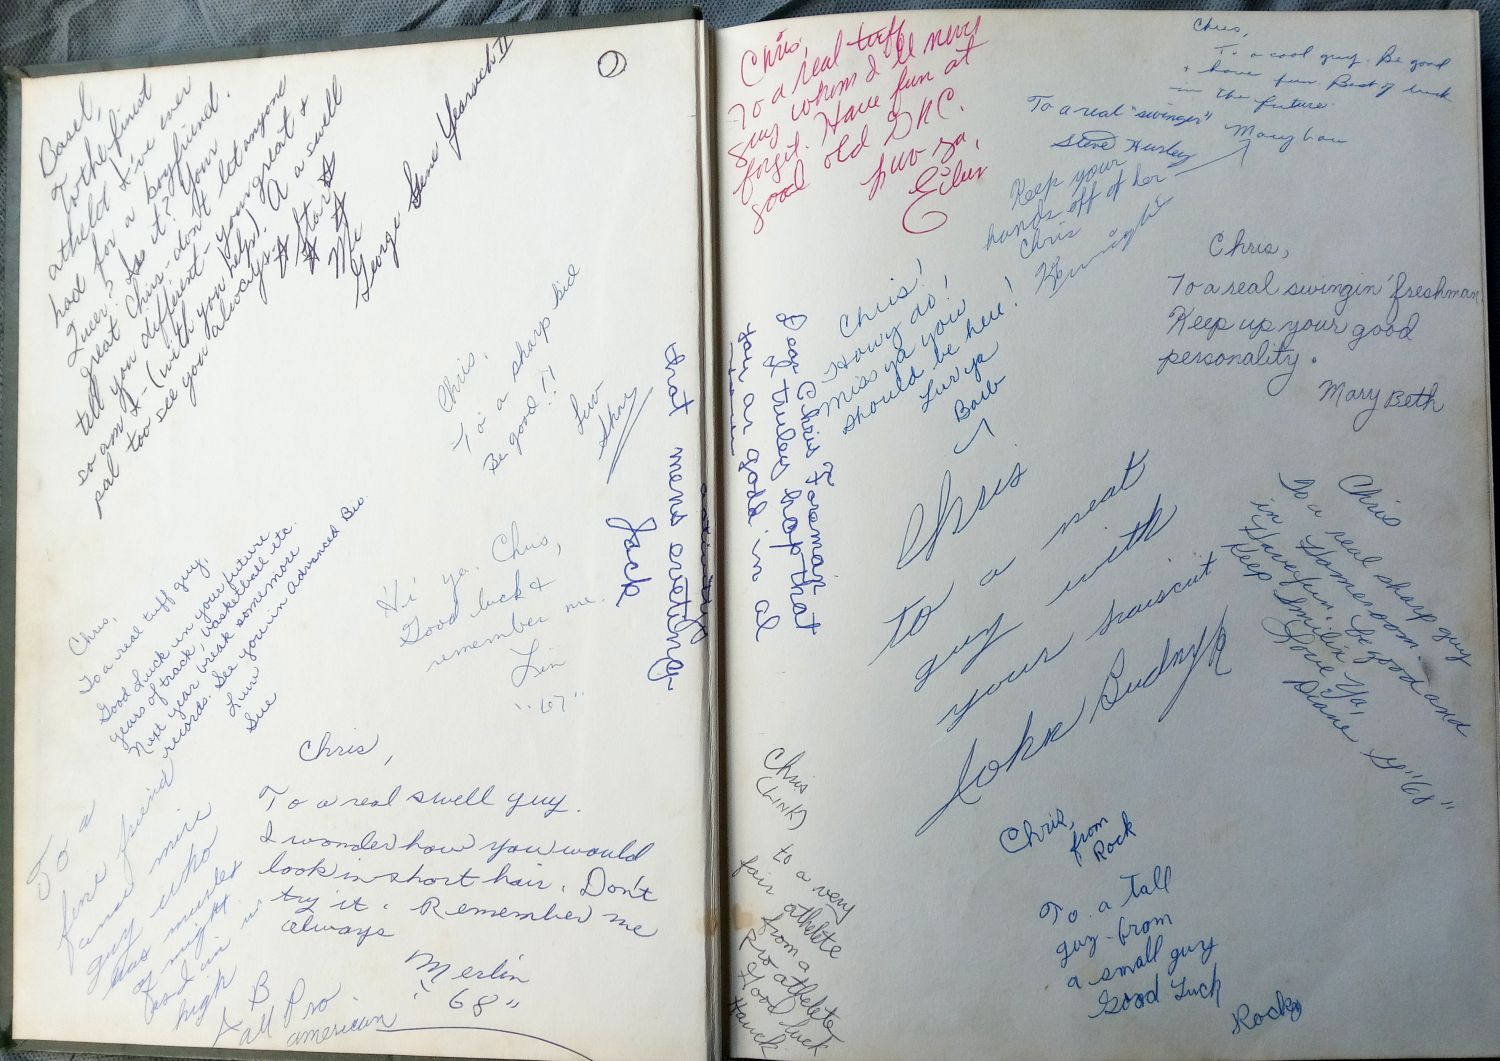 Basel,
To the finest
athelot I've ever
had for a boyfriend.
Queer? Is it? Your
great Chris-don't let anyone
tell you different- You're great &
so am I-(with your help). A a swell
pal too see you always Star
Me
George Gene Yearwich II
Chris,
To a sharp kid
Be good!!
Luv
Shar
Chris,
To a real tuff guy,
Good Luck in your future
years of track, basketball etc.
Next year break somemore
records. See you in advanced Bio.
Luv
Sue
Hi ya Chris,
Good luck &
remember me.
Lin
"67"
Chris,
To a real swell guy.
I wonder how you would
look in short hair. Don't
try it. Remember me
always
Merlin
"68"
To a
fine friend
and nice
guy who
has muscles
of might
and in in
high
A B
all Pro
american
Chris,
To a real tuff
guy whom I'll never
forget. Have fun at
good old GRC.
Luv ya,
Eileen
Chris,
To a cool guy. Be good
+ have fun. Best of luck
in the future.
Mary Lou
To a real "swinger"
Steve Hurley
Keep your
hands off of her
Chris
Chris!
Howy do!
Miss ya you
should be here!
Luv ya
Barb
Chris,
To a real swingin' freshman
Keep up your good
personality.
Mary Beth
Dear Chris Foreman
I truley hop that
your as godd in al
that mens evething
Jack
Chris
to a neat
guy with
your haircut
John Budnyk
Chris
To a real sharp guy
in Homeroom.
Have fun, be good and
Keep Smilin
Love Ya,
Diane "68"
Chris
(LINK)
to a very
fair athlete
from a
Pro athlete
Good luck
Hauck
Chris,
from
Rock
To a tall
guy-from
a small guy
Good Luck
Rocky